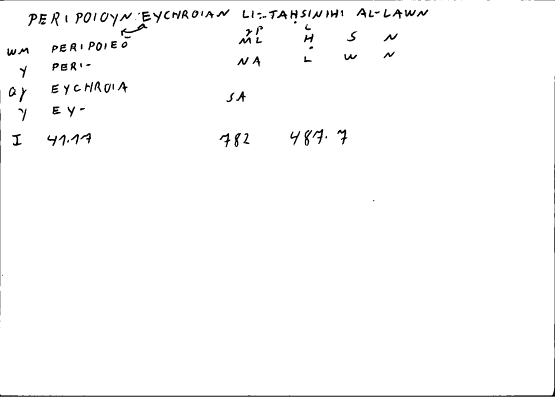 PERIPOIOYN:EYCHROIAN LI-TAḤSINIHI AL-LAWN
WM PERIPOIEŌ ML Ḥ S N
Y PERI- NA L W N
EYCHROIA
Y EY- SA
I 41.17 782 487.7